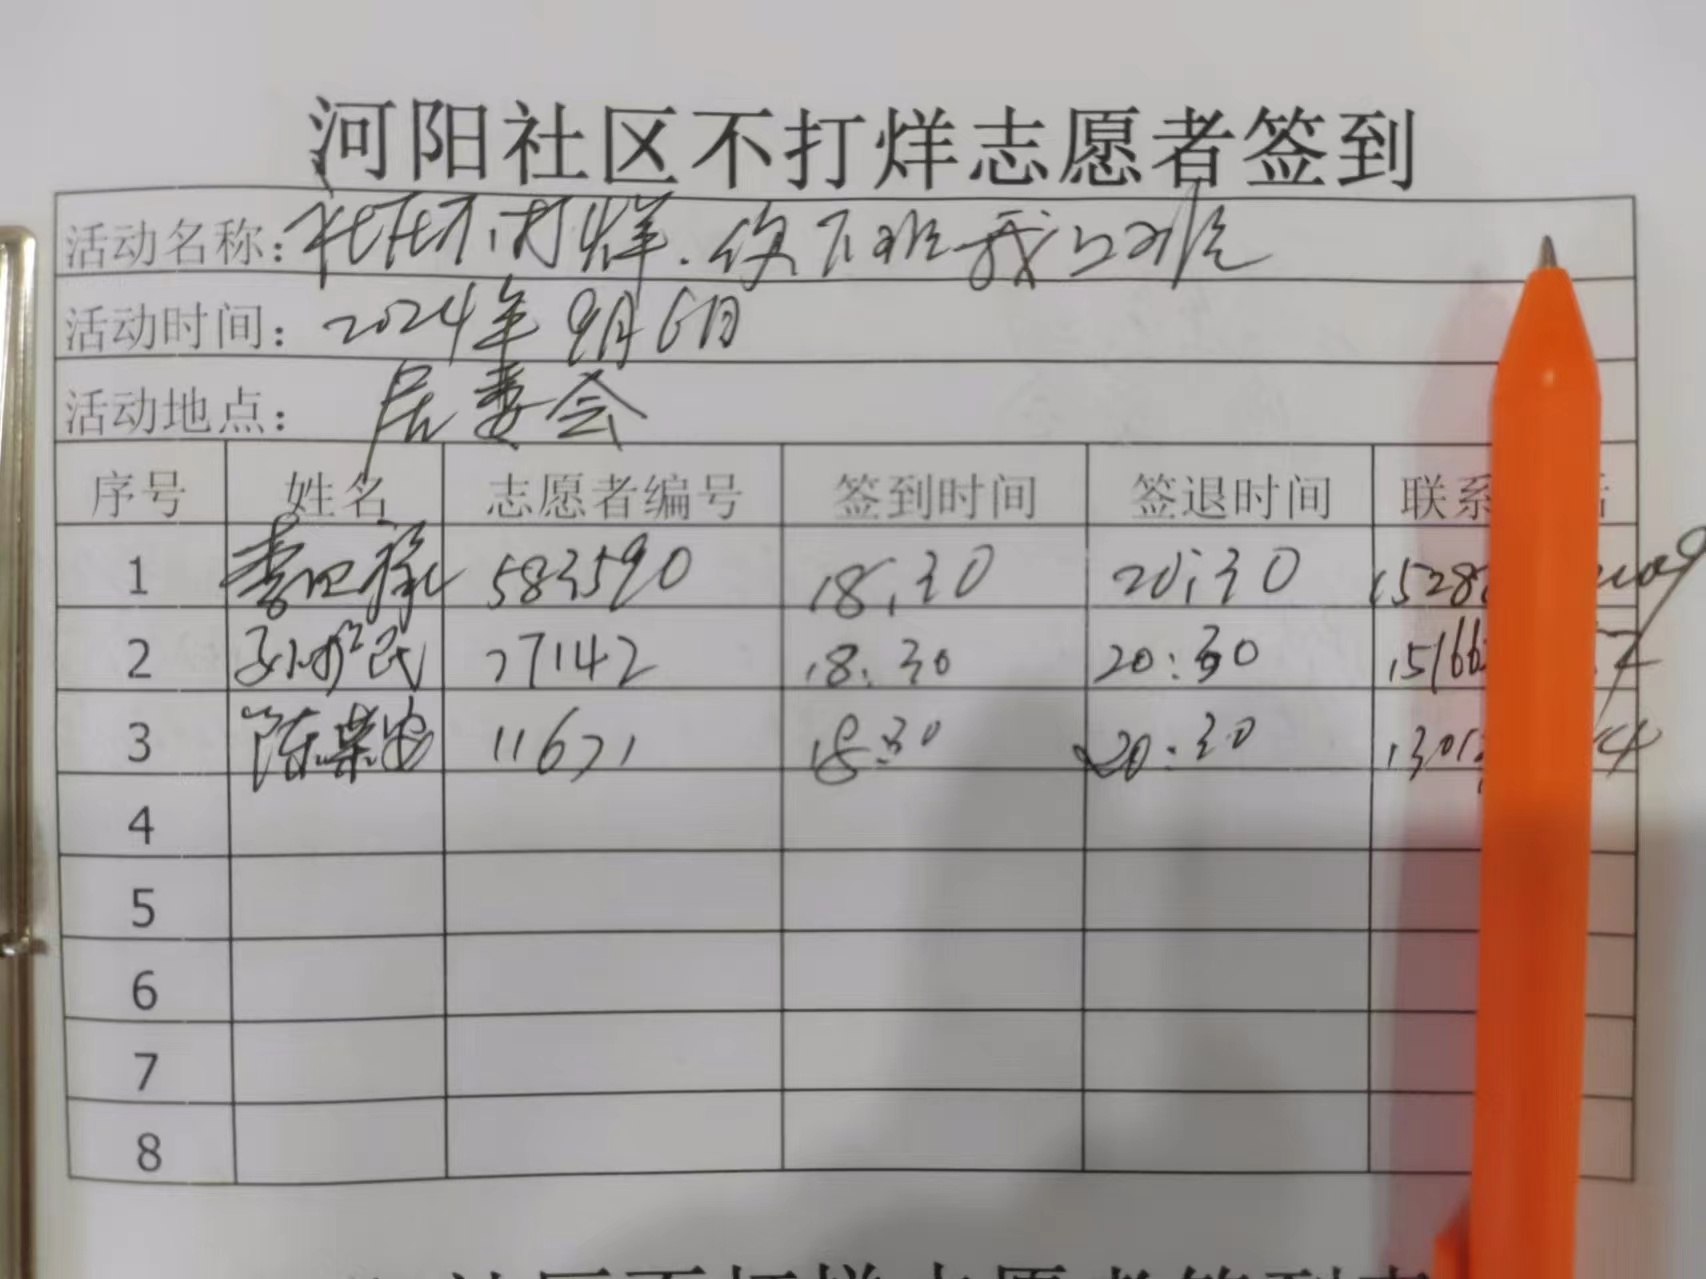 河阳社区不打烊志愿者签到
活动名称：社区不打烊.你下班我上班
活动时间：2024年9月6日
活动地点：居委会
序号 姓名 志愿者编号 签到时间 签退时间 联系
1 583590 18:30 20:30 1528
2 民 77142 18:30 20:30 15166
3 陈荣 11671 18:30 20:30 1301
4
5
6
7
8